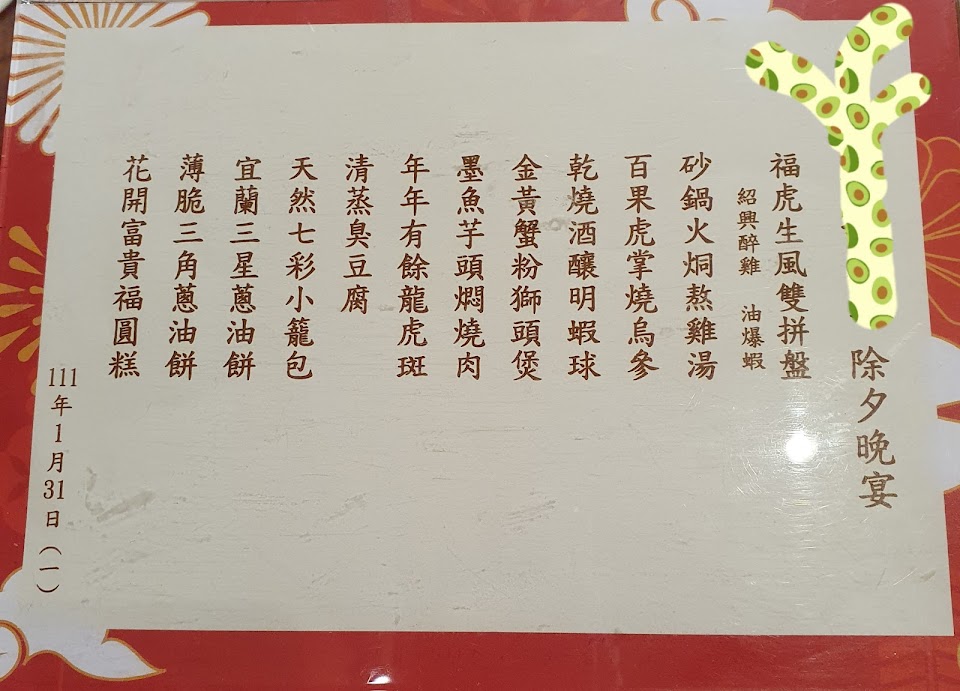 除夕晚宴
福虎生風雙拼盤
紹興醉雞 油爆蝦
砂鍋火烔熬雞湯
百果虎掌燒烏參
乾燒酒釀明蝦球
金黃蟹粉獅頭煲
墨魚芋頭燜燒肉
年年有餘龍虎斑
清蒸臭豆腐
天然七彩小籠包
宜蘭三星蔥油餅
薄脆三角蔥油餅
花開富貴福圓糕
111年1月31日(一)